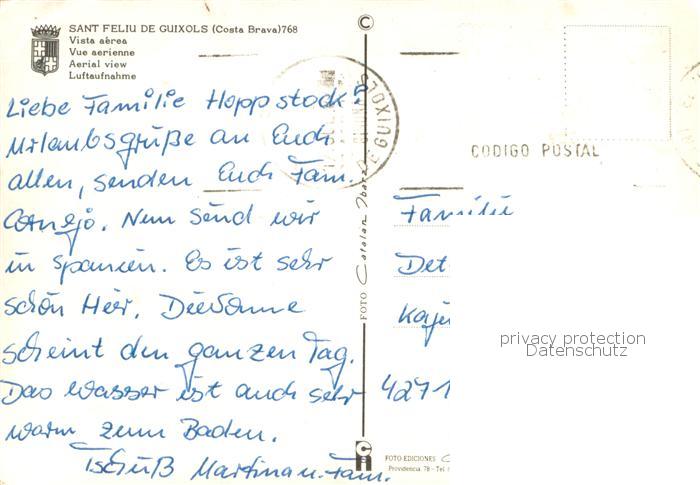 SANT FELIU DE GUIXOLS (Costa Brava)768
Vista aérea
Vue aerienne
Aerial view
Luftaufnahme
Liebe Familie Hoppstock!
Urlaubsgrüße an Euch
allen, senden Euch Fam.
Cornejo. Nun sind wir
in Spanien. Es ist sehr
schön Hier. Die Sonne
scheint den ganzen Tag.
Das Wasser ist auch sehr
warm zum Baden.
Tschüß Martina u. Fam.
©
DE GUIXOLS
CODIGO POSTAL
FOTO Catalan Ibarz
Familie
Det
Kaje
4271
privacy protection
Datenschutz
FOTO EDICIONES C
Providencia, 78 - Tel